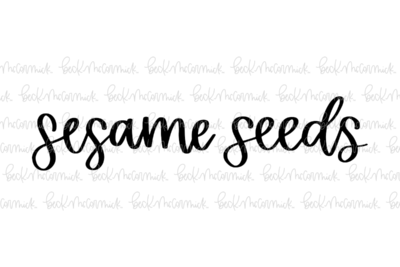 sesame seeds